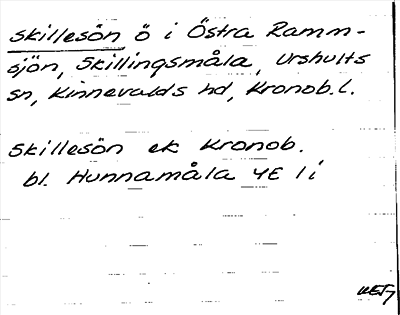 Skillesön ö i Östra Ramm-
sjön, Skillingsmåla, Urshults
sn, Kinnevalds hd, Kronob.l.
Skillesön ek Kronob.
bl. Hunnamåla 4E 1i